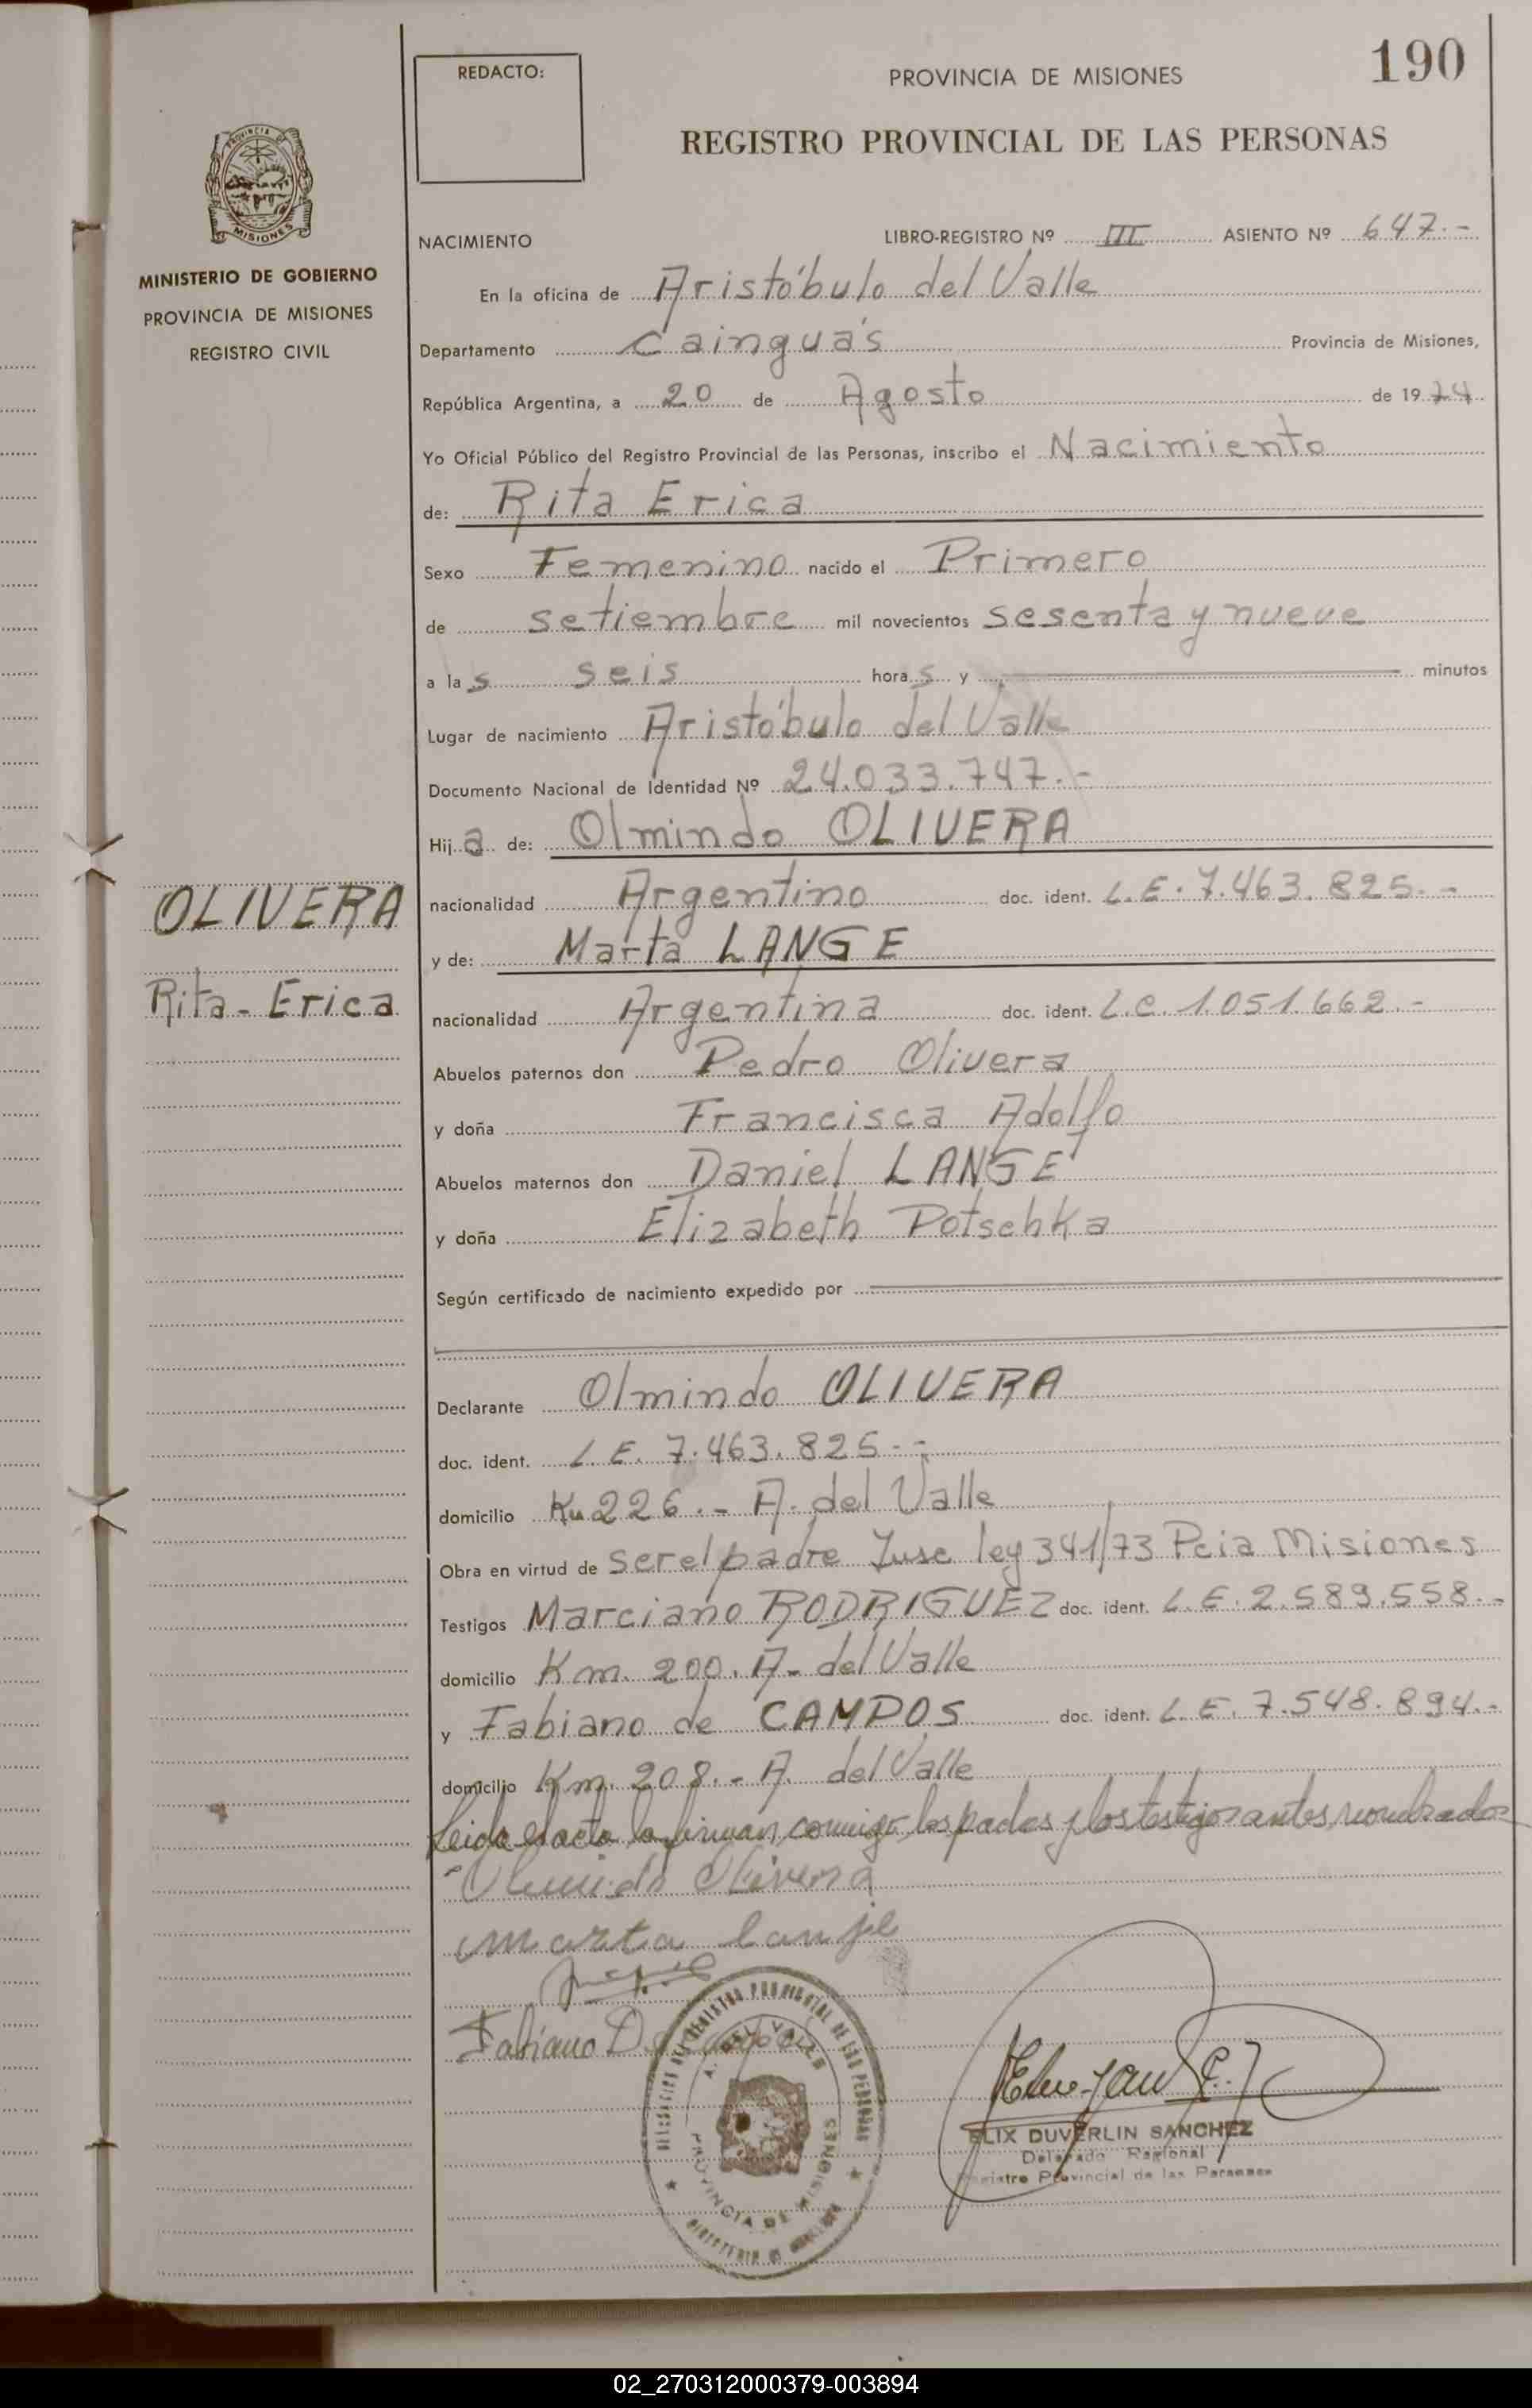 REDACTO:
PROVINCIA DE MISIONES
190
REGISTRO PROVINCIAL DE LAS PERSONAS
PROVINCIA DE
MISIONES
MINISTERIO DE GOBIERNO
PROVINCIA DE MISIONES
REGISTRO CIVIL
NACIMIENTO LIBRO-REGISTRO Nº III ASIENTO Nº 647.-
En la oficina de Aristóbulo del Valle
Departamento Cainguás Provincia de Misiones,
República Argentina, a 20 de Agosto de 1974
Yo Oficial Público del Registro Provincial de las Personas, inscribo el Nacimiento
de: Rita Erica
Sexo Femenino nacido el Primero
de setiembre mil novecientos sesenta y nueve
a las seis horas y minutos
Lugar de nacimiento Aristóbulo del Valle
Documento Nacional de Identidad Nº 24.033.747.-
Hija de: Olmindo OLIVERA
OLIVERA
nacionalidad Argentino doc. ident. L.E. 7.463.825.-
y de: Marta LANGE
Rita-Erica
nacionalidad Argentina doc. ident. L.C. 1.051.662.-
Abuelos paternos don Pedro Olivera
y doña Francisca Adolfo
Abuelos maternos don Daniel LANGE
y doña Elizabeth Potschka
Según certificado de nacimiento expedido por
Declarante Olmindo OLIVERA
doc. ident. L.E. 7.463.825.-
domicilio Km 226.- A. del Valle
Obra en virtud de ser el padre Insc ley 341/73 Pcia Misiones
Testigos Marciano RODRIGUEZ doc. ident. L.E. 2.589.558.-
domicilio Km. 200. A. del Valle
y Fabiano de CAMPOS doc. ident. L.E. 7.548.894.-
domicilio Km. 208.- A. del Valle
Leida el acta la firman conmigo los padres y los testigos antes nombrados
Olmindo Olivera
marta lanje
Fabiano D
DELEGACION DEL REGISTRO PROVINCIAL DE LAS PERSONAS
A. DEL VALLE
PROVINCIA DE MISIONES
MINISTERIO DE GOBIERNO
ELIX DUVERLIN SANCHEZ
Delegado Regional
Registro Provincial de las Personas
02_270312000379-003894